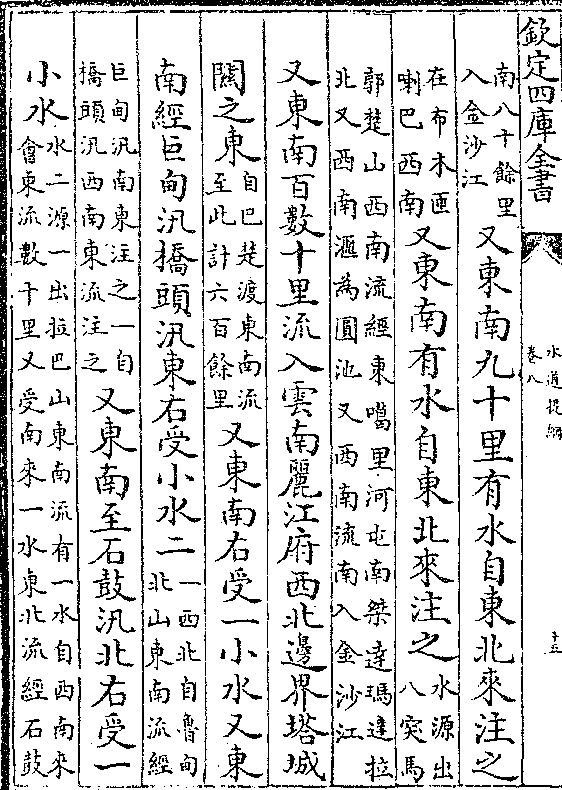 欽定四庫全書
水道提綱
卷八
十五
南八十餘里
入金沙江
又東南九十里有水自東北來注之
在布木匝
喇巴西南
又東南有水自東北來注之
水源出
八突馬
郭楚山西南流經東噶里河屯南桀達瑪達拉
北又西南滙為圓池又西南流南入金沙江
又東南百數十里流入雲南麗江府西北邊界塔城
關之東
自巴楚渡東南流
至此計六百餘里
又東南右受一小水又東
南經巨甸汛橋頭汛東右受小水二
一西北自魯甸
北山東南流經
巨甸汛南東注之一自
橋頭汛西南東流注之
又東南至石鼓汛北右受一
小水
水二源一出拉巴山東南流有一水自西南來
會東流數十里又受南來一水東北流經石鼓